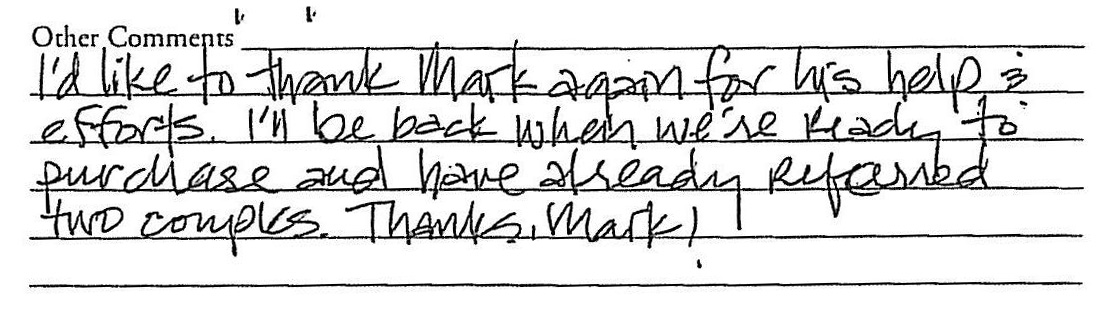 Other Comments
I'd like to thank Mark again for his help &
efforts. I'll be back when we're ready to
purchase and have already referred
two couples. Thanks, Mark!